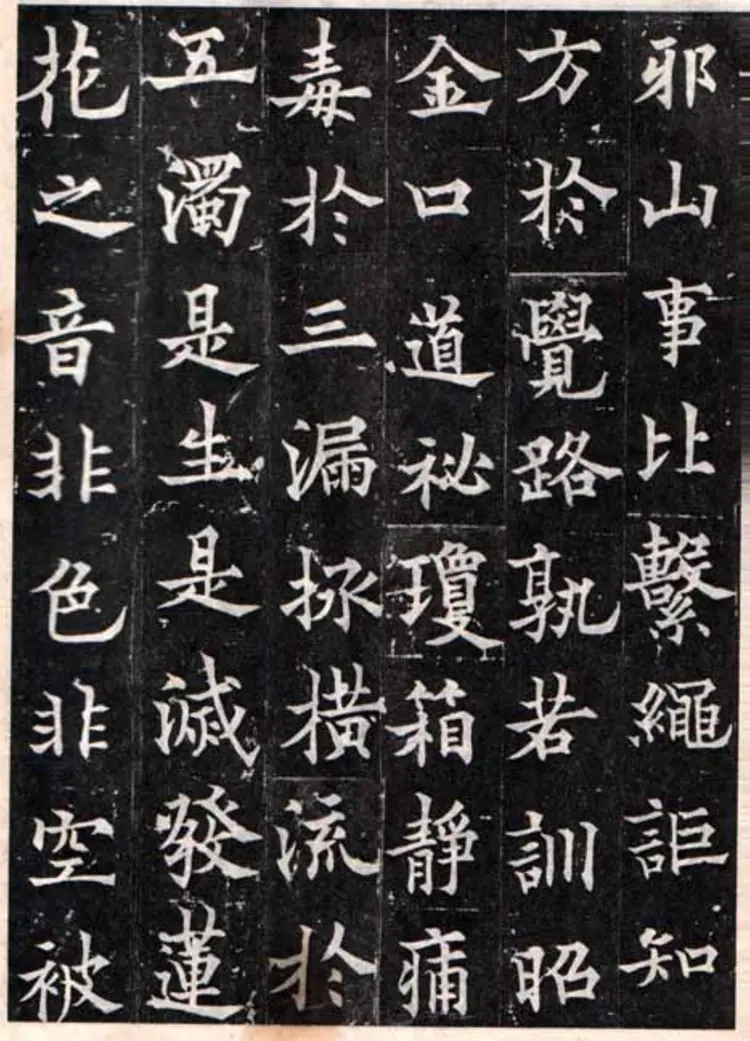 邪山事比繫繩詎知
方於覺路孰若訓昭
金口道祕瓊箱靜痛
毒於三漏拯橫流於
五濁是生是滅發蓮
花之音非色非空被